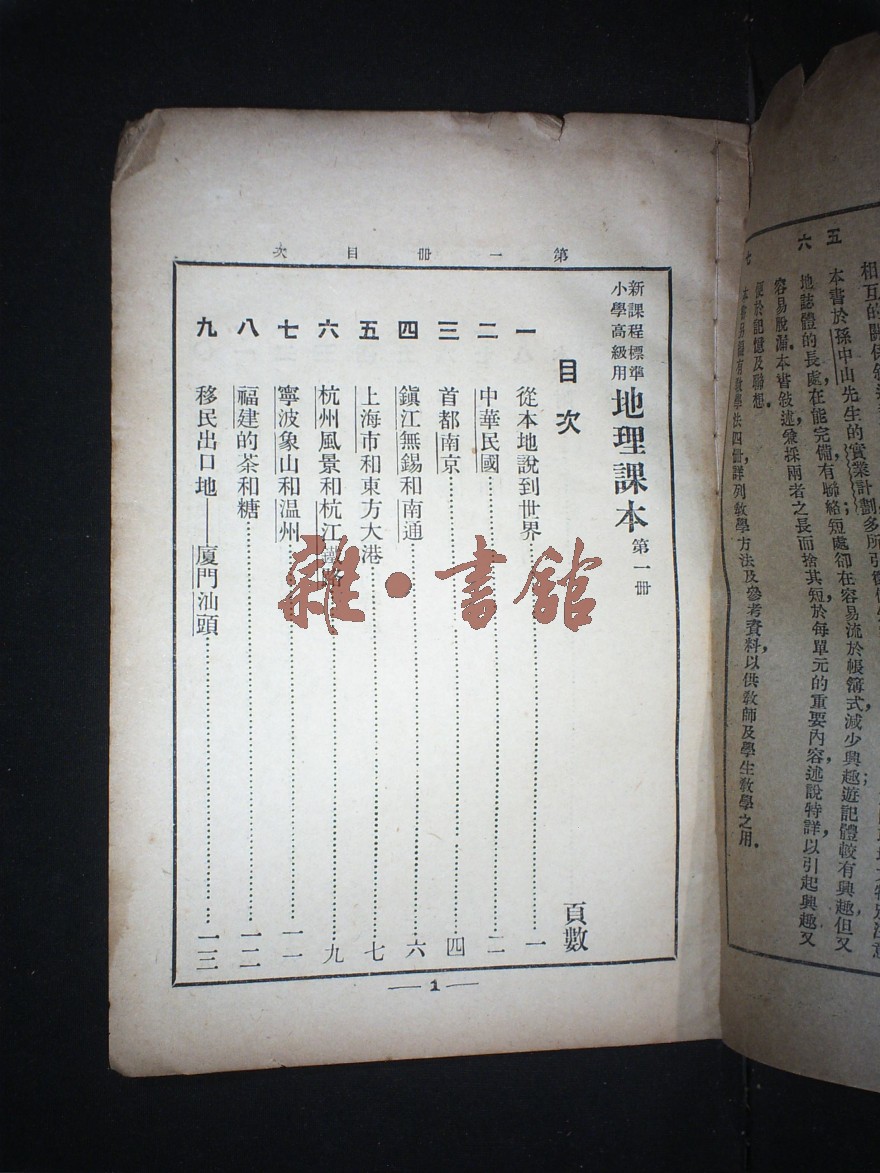 五
六
七
相互的關係
本書於孫中山先生的實業計劃多所引
地誌體的長處在能完備有聯絡,短處卻在容易流於帳簿式,減少興趣;遊記體較有興趣,但又
容易脫漏.本書敘述,兼採兩者之長而捨其短,於每單元的重要內容,述說特詳,以引起興趣又
便於記憶及聯想.
有教學法四冊,詳列教學方法及參考資料,以供教師及學生教學之用.
第一冊目次
新課程標準
小學高級用
地理課本 第一冊
目次 頁數
一 從本地說到世界 一
二 中華民國 二
三 首都南京 四
四 鎮江無錫和南通 六
五 上海市和東方大港 七
六 杭州風景和杭江鐵路 九
七 寧波象山和温州 一一
八 福建的茶和糖 一二
九 移民出口地——廈門汕頭 一三
— 1 —
雜·書館